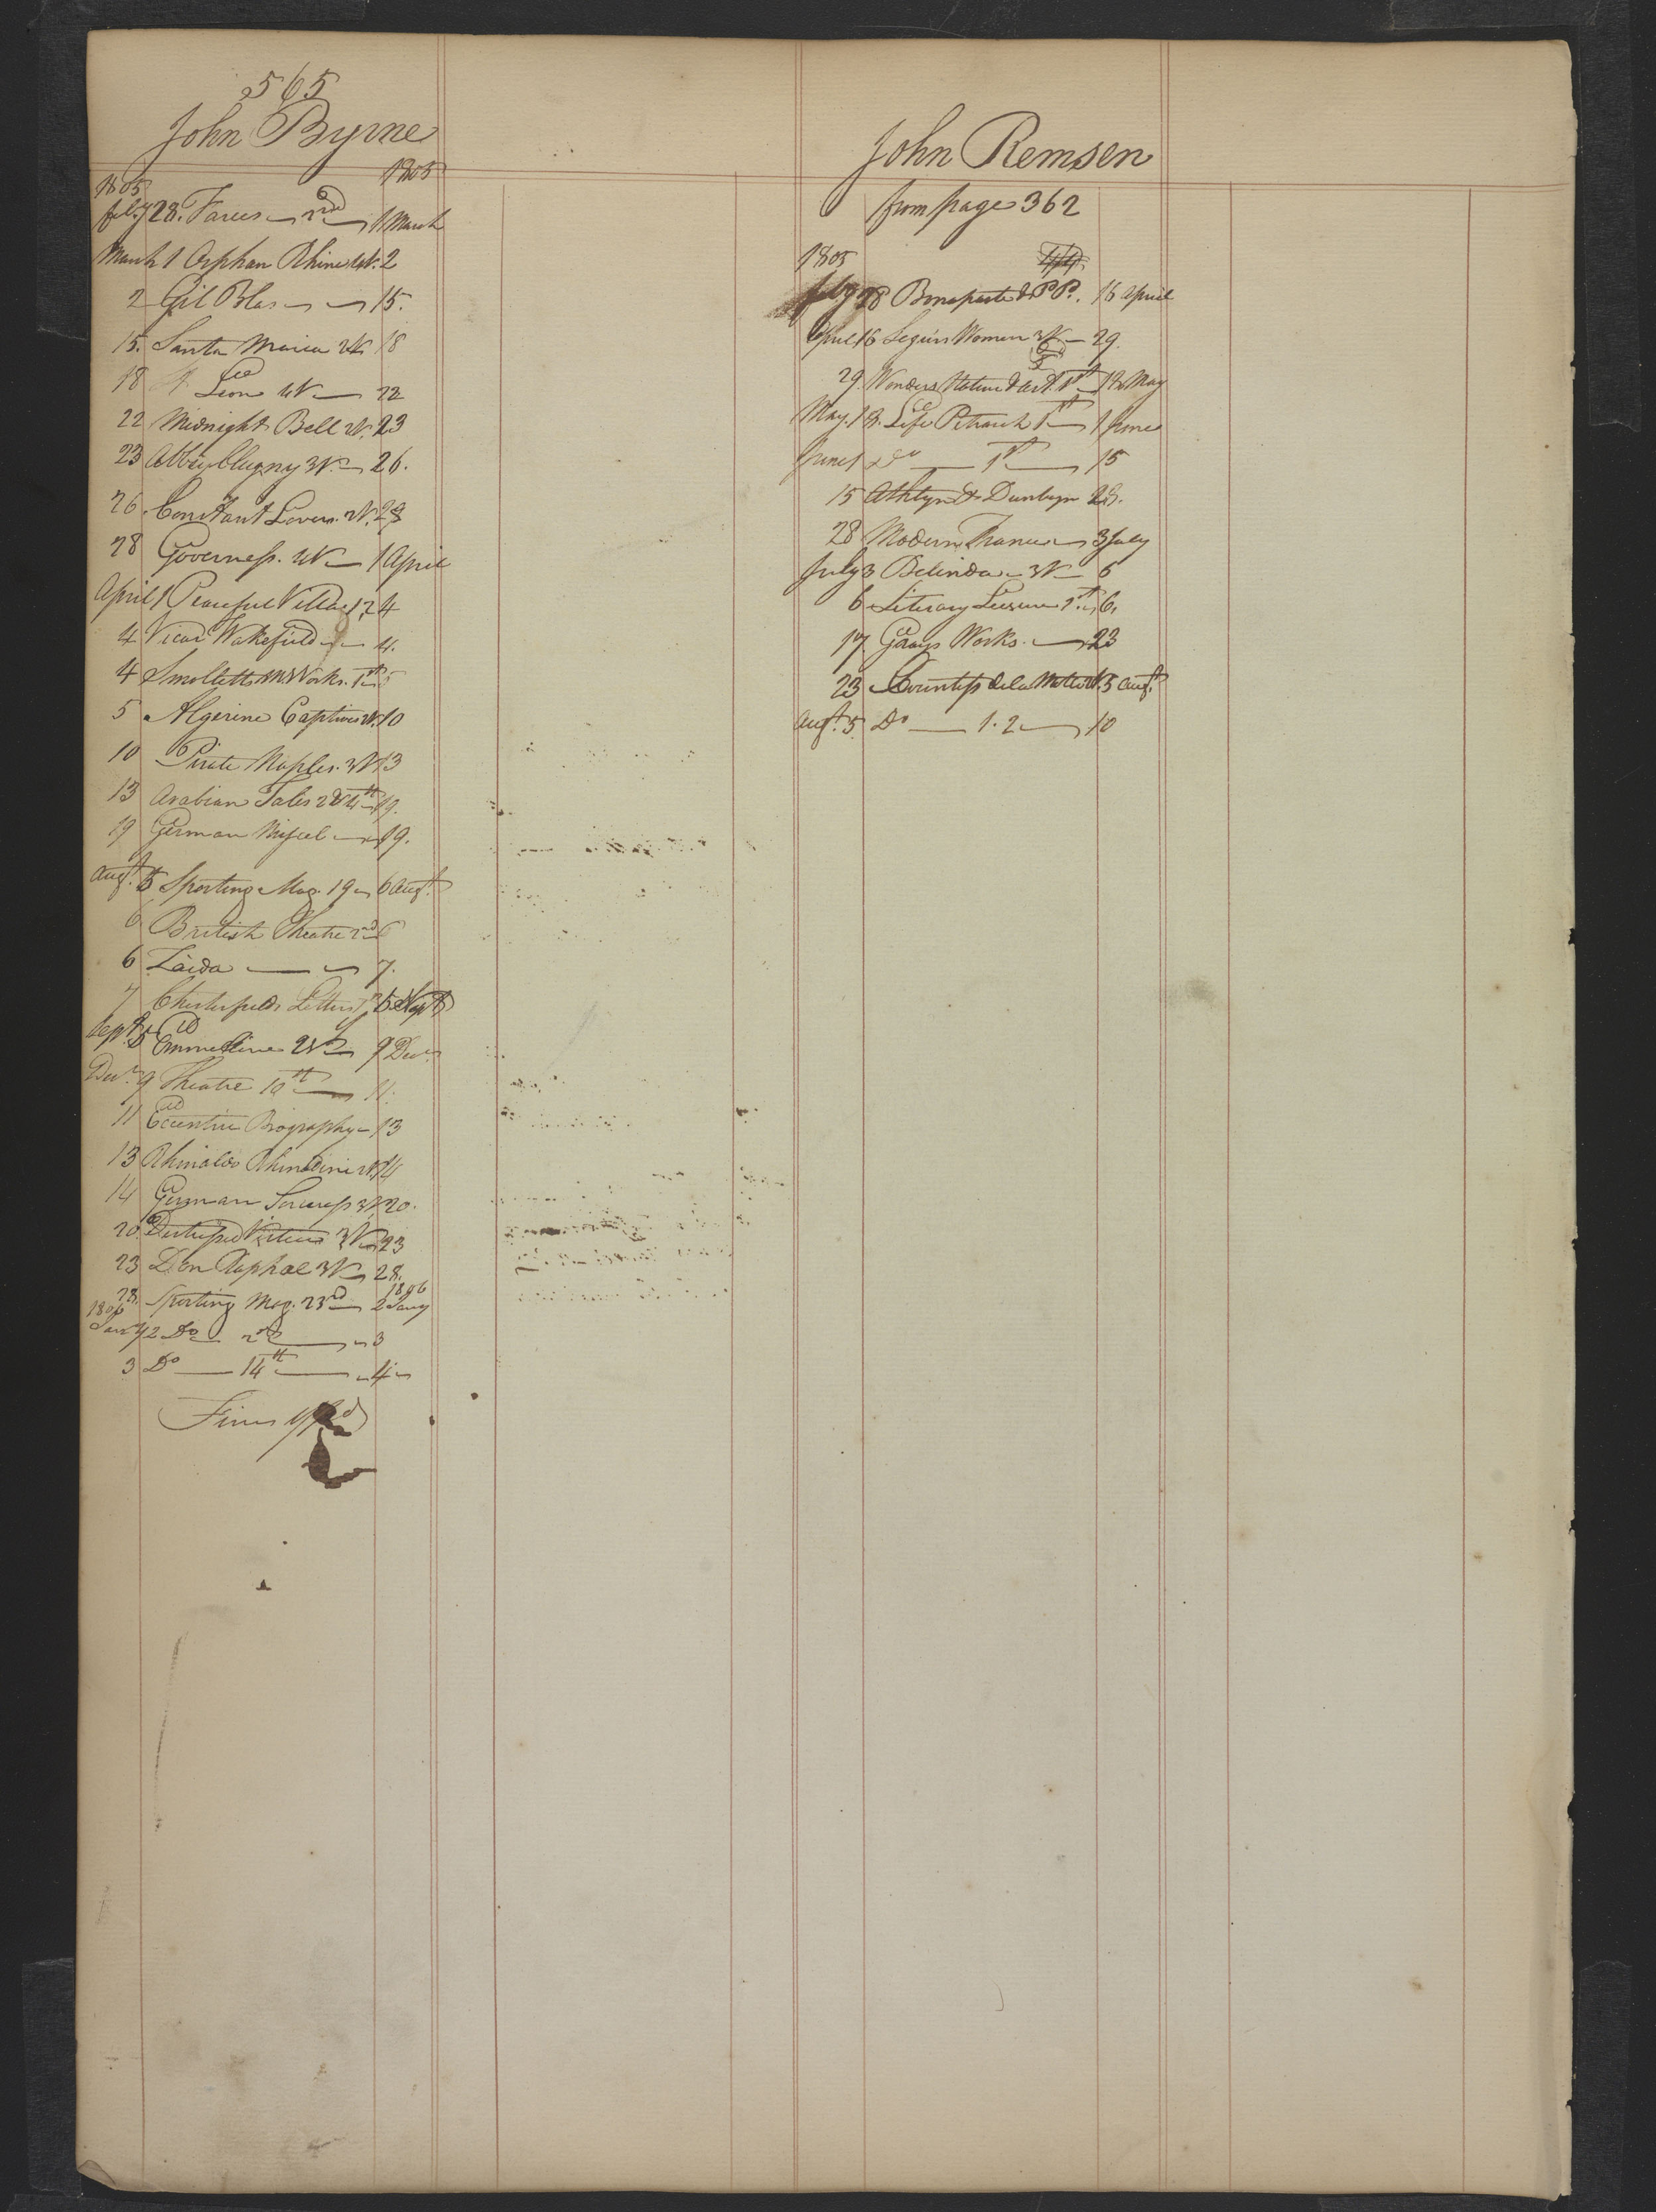 565
John Byrne
1805 1805
feby 28. Farces — 2nd — 1 March
March 1 Orphan Rhine 4V. 2
2 Gil Blas — 15.
15. Santa Maria 2V. 18
18 St Leon 4V — 22
22 Midnight Bell 2V. 23
23 Abbey Clugny 3V. — 26.
26. Constant Lovers. 2V. 28
28 Governess. 4V — 1 April
April 1 Peaceful Villa 1.2 4
4 Vicar Wakefield — 4.
4 Smolletts Works. 1st 5
5 Algerine Captive 2V. 10
10 Pirate Naples. 3V 13
13 Arabian Tales 2 & 4th 19.
19 German Miscel — 19.
Augt. 5 Sporting Mag. 19 — 6 Augt.
6 British Theatre 2nd 6
6 Zaida — 7.
7 Chesterfields Letters 5 Sept
Sept 5 Emmeline 9 Decr
Decr. 9 Theatre 10th — 11.
11 Eccentric Biography — 13
13 Rhinaldo Rhinaldini 2V. 14
14 German Sorceress 3V. 20.
20 Distressed Virtue 3V — 23
23 Don Raphael 3V — 28.
28. Sporting Mag. 23rd — 1806 2 Jany
1806
Jany 2 Do — 22 — 3
3 Do — 14th — 4
Fines
John Remsen
from page 362
1805
feby 28 Bonaparte & P P. 16 April
April 16 Segurs Women 3V — 29.
29. Wonders Nature & Art. 1st — 18 May
May. 18. Life Petrarch 1st — 1 June
June 1 Do — 1st — 15
15 Athlyn & Dunbayn 28.
28 Modern France — 3 July
July 3 Belinda — 3V — 6
6 Literary Leisure 1st. 6.
17. Grays Works. — 23
23 Countess de la Motte 5 Augt.
Augt. 5 Do — 1. 2 — 10